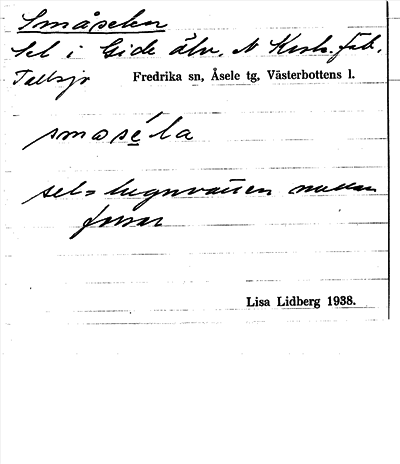 Småselen
Sel i Gide älv. N Kvok. fab.
Tallsjö Fredrika sn, Åsele tg, Västerbottens l.
smɑséla
sel = lugnvatten mellan
forsar
Lisa Lidberg 1938.